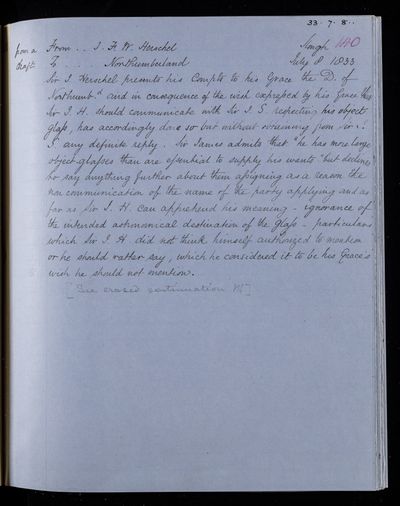 33·7·8··
140
from a draft
From .. J. F. W. Herschel Slough
To .. Northumberland July 8 1833
Sir J Herschel presents his Compts to his Grace the D. of
Northumbd and in consequence of the wish expressed by his Grace that
Sir J. H. should communicate with Sir J. S. respecting his object
glass, has accordingly done so but without receiving from Sir J.
S any definite reply. Sir James admits that "he has more large
object-glasses than are essential to supply his wants" but declines
to say anything further about them assigning as a reason the
non communication of the name of the party applying and as
far as Sir J. H. can apprehend his meaning - ignorance of
the intended astronomical destination of the glass - particulars
which Sir J. H. did not think himself authorized to mention
or he should rather say, which he considered it to be his Grace's
wish he should not mention.
[See erased continuation MS]